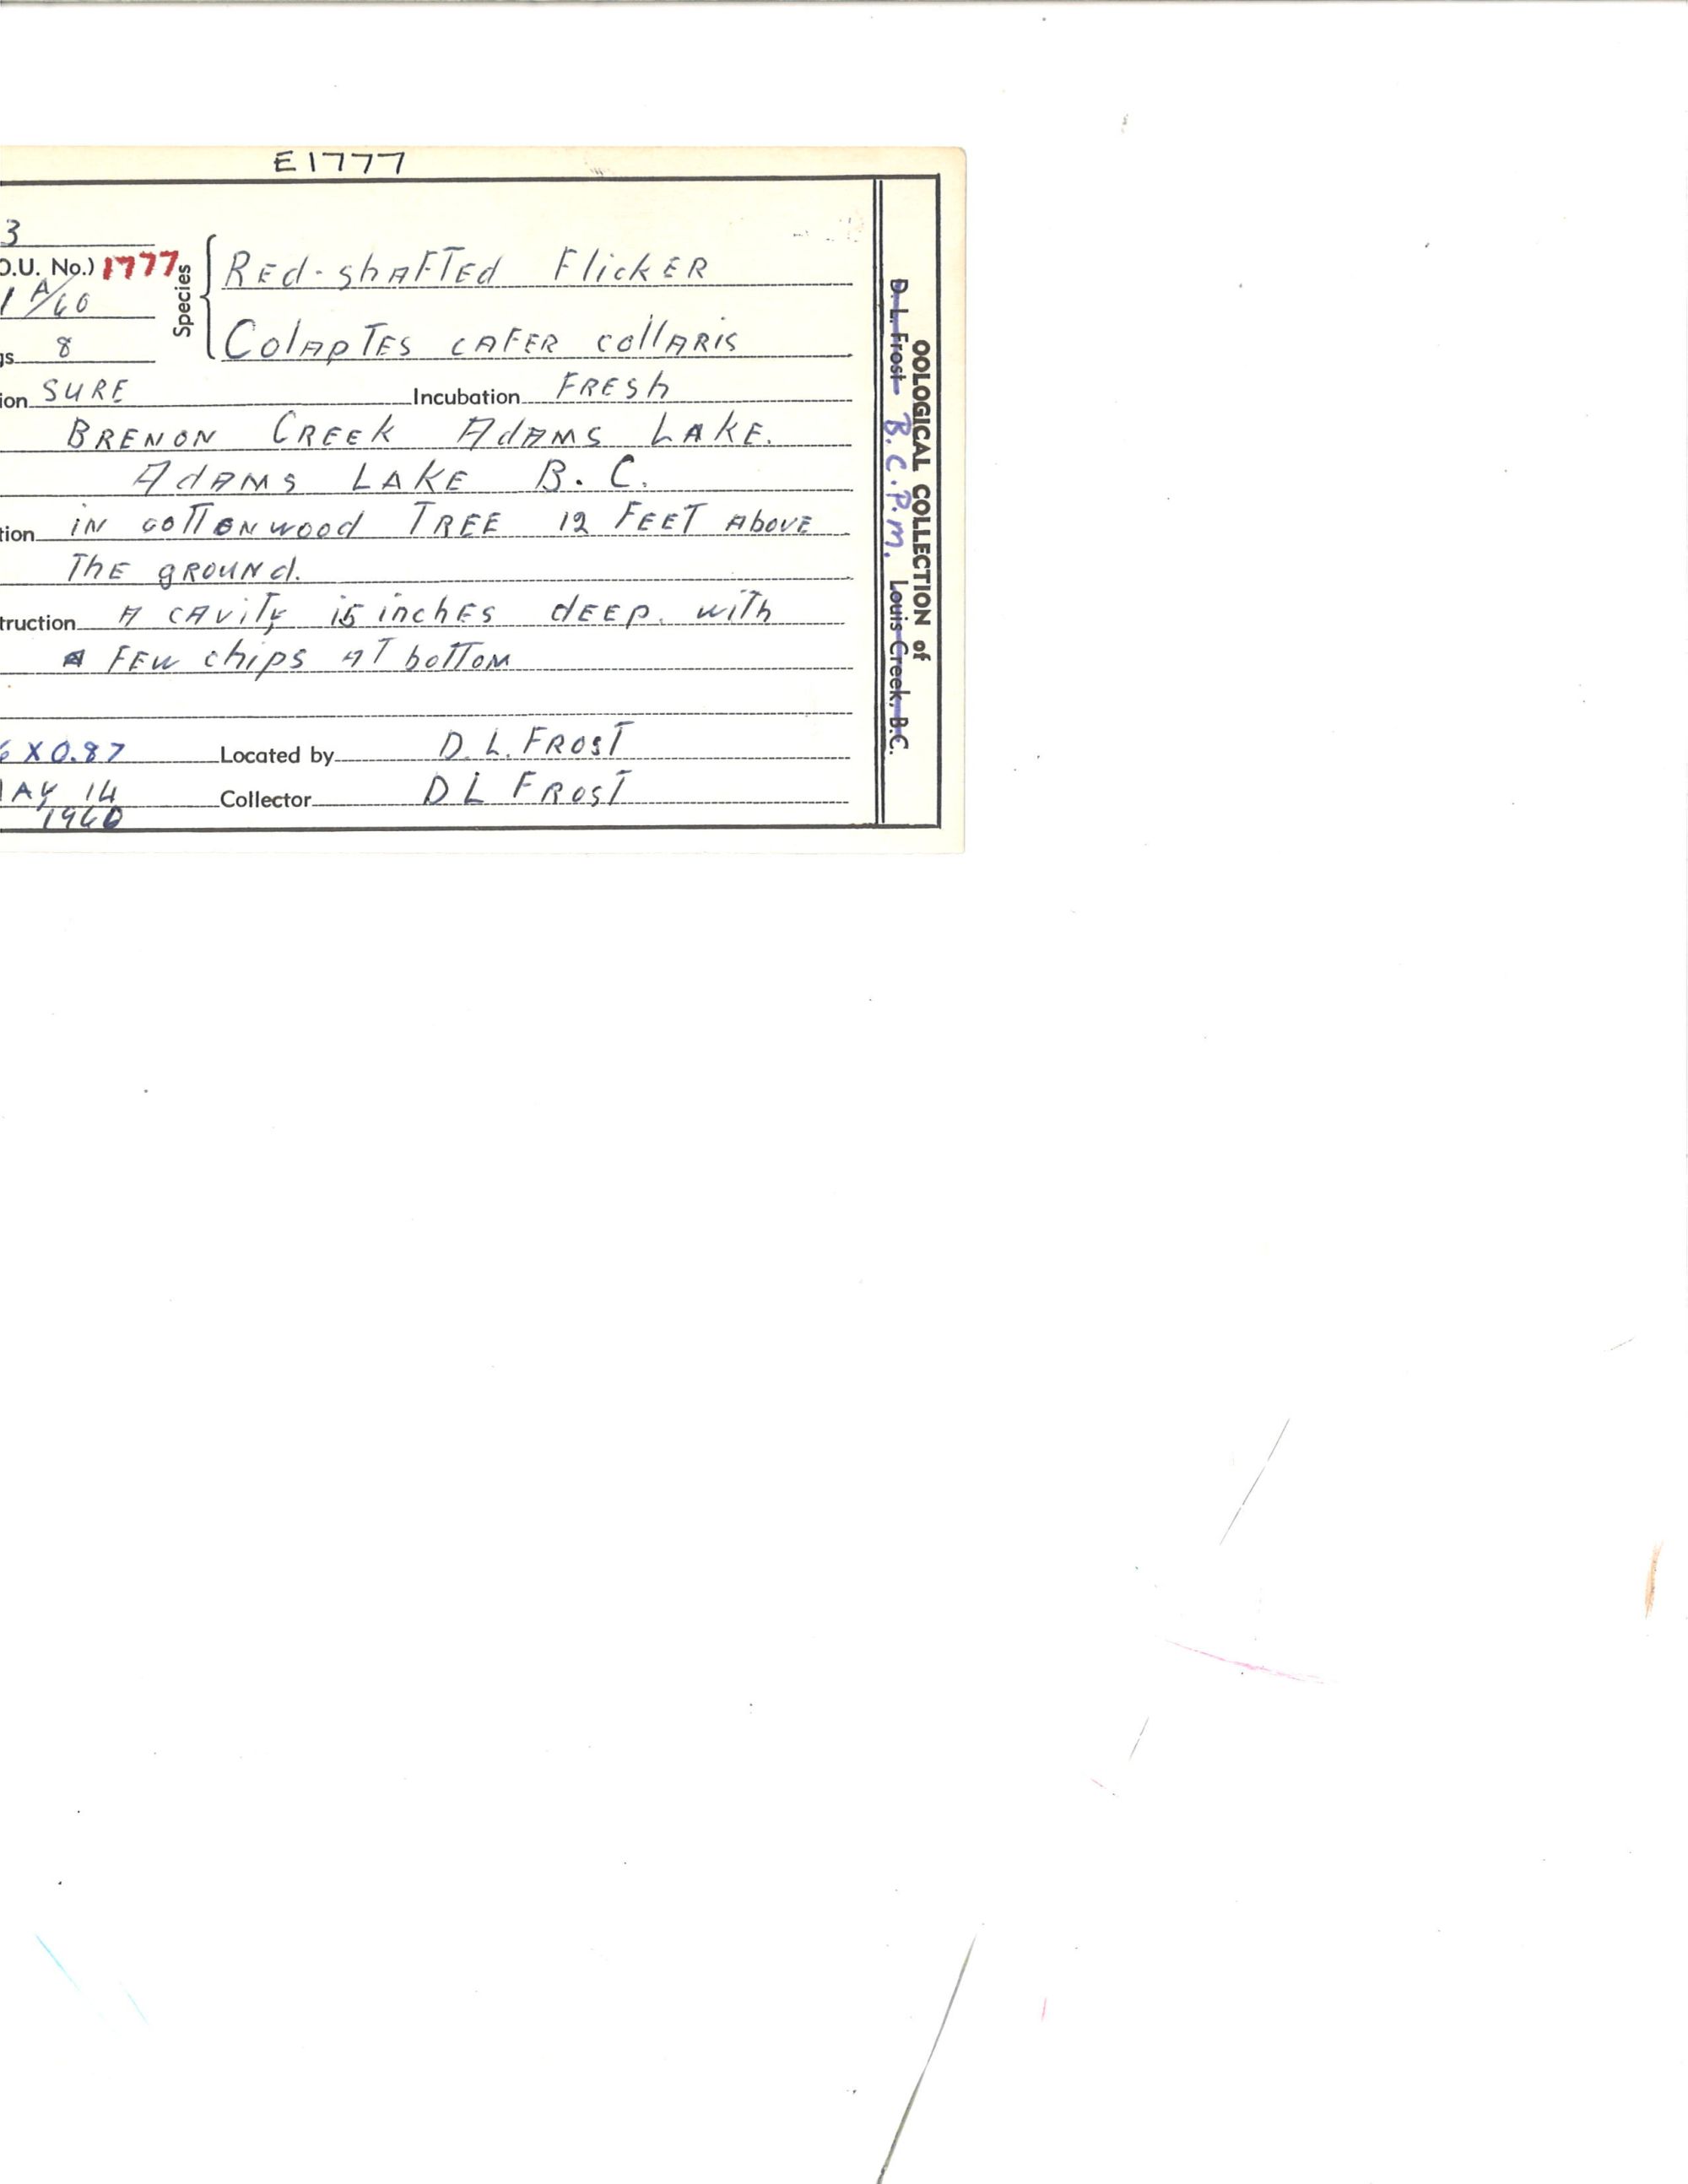 E1777
3
O.U. No.) 1777
1 A/60
gs 8
Species
Red-shafted Flicker
Colaptes cafer collaris
ion SURE Incubation FRESh
BRENON CREEK AdAMS LAKE.
AdAMS LAKE B.C.
tion iN coTTONwood TREE 12 FEET Above
The gROUNd.
truction A cAviTy 15 inchES dEEp. wiTh
A FEW chips AT boTTOM
6 X 0.87 Located by D.L. FROST
AY 14 Collector D L FROST
1960
OOLOGICAL COLLECTION of
D. L. Frost B.C.P.M. Louis Creek, B.C.